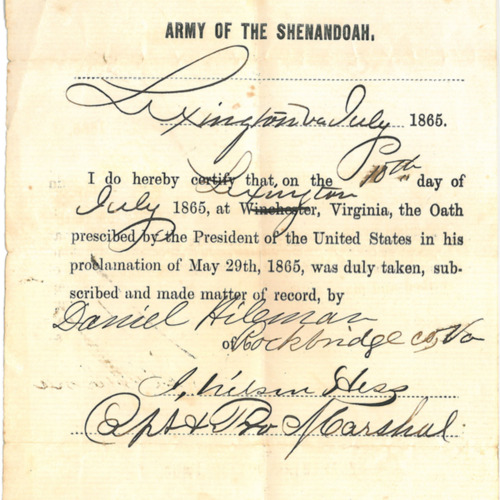 ARMY OF THE SHENANDOAH.
Lexington Va July 1865.
I do hereby certify that, on the 10th day of
Lexington
July 1865, at Winchester, Virginia, the Oath
prescibed by the President of the United States in his
proclamation of May 29th, 1865, was duly taken, sub-
scribed and made matter of record, by
Daniel Hileman
of Rockbridge co, Va
J. Wilson Hess
Capt & Pro Marshal.